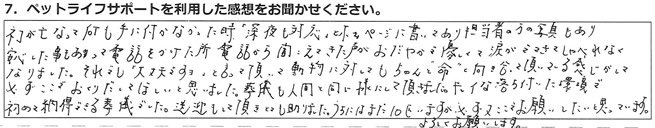 7. ペットライフサポートを利用した感想をお聞かせください。
初が亡なって何も手に付かなかった時「深夜も対応」とホームページに書いてあり担当者の方の写真もあり
安心した事もあって電話をかけた所電話から聞こえてきた声がおだやかで優しくて涙がでてきてしゃべれなく
なりました。それでも"大丈夫ですよ"と言って頂いて動物に対してもちゃんと"命"と向き合って頂いている感じがして
ぜひここでおくりだしてほしいと思いました。葬儀も人間と同じ様にして頂きましたしキレイな落ち付いた環境で
初めて納得できる葬儀でした。送迎もして頂きとても助かりました。うちにはまだ10匹いますがぜひまたここでお願いしたいと思っています。
よろしくお願いします。